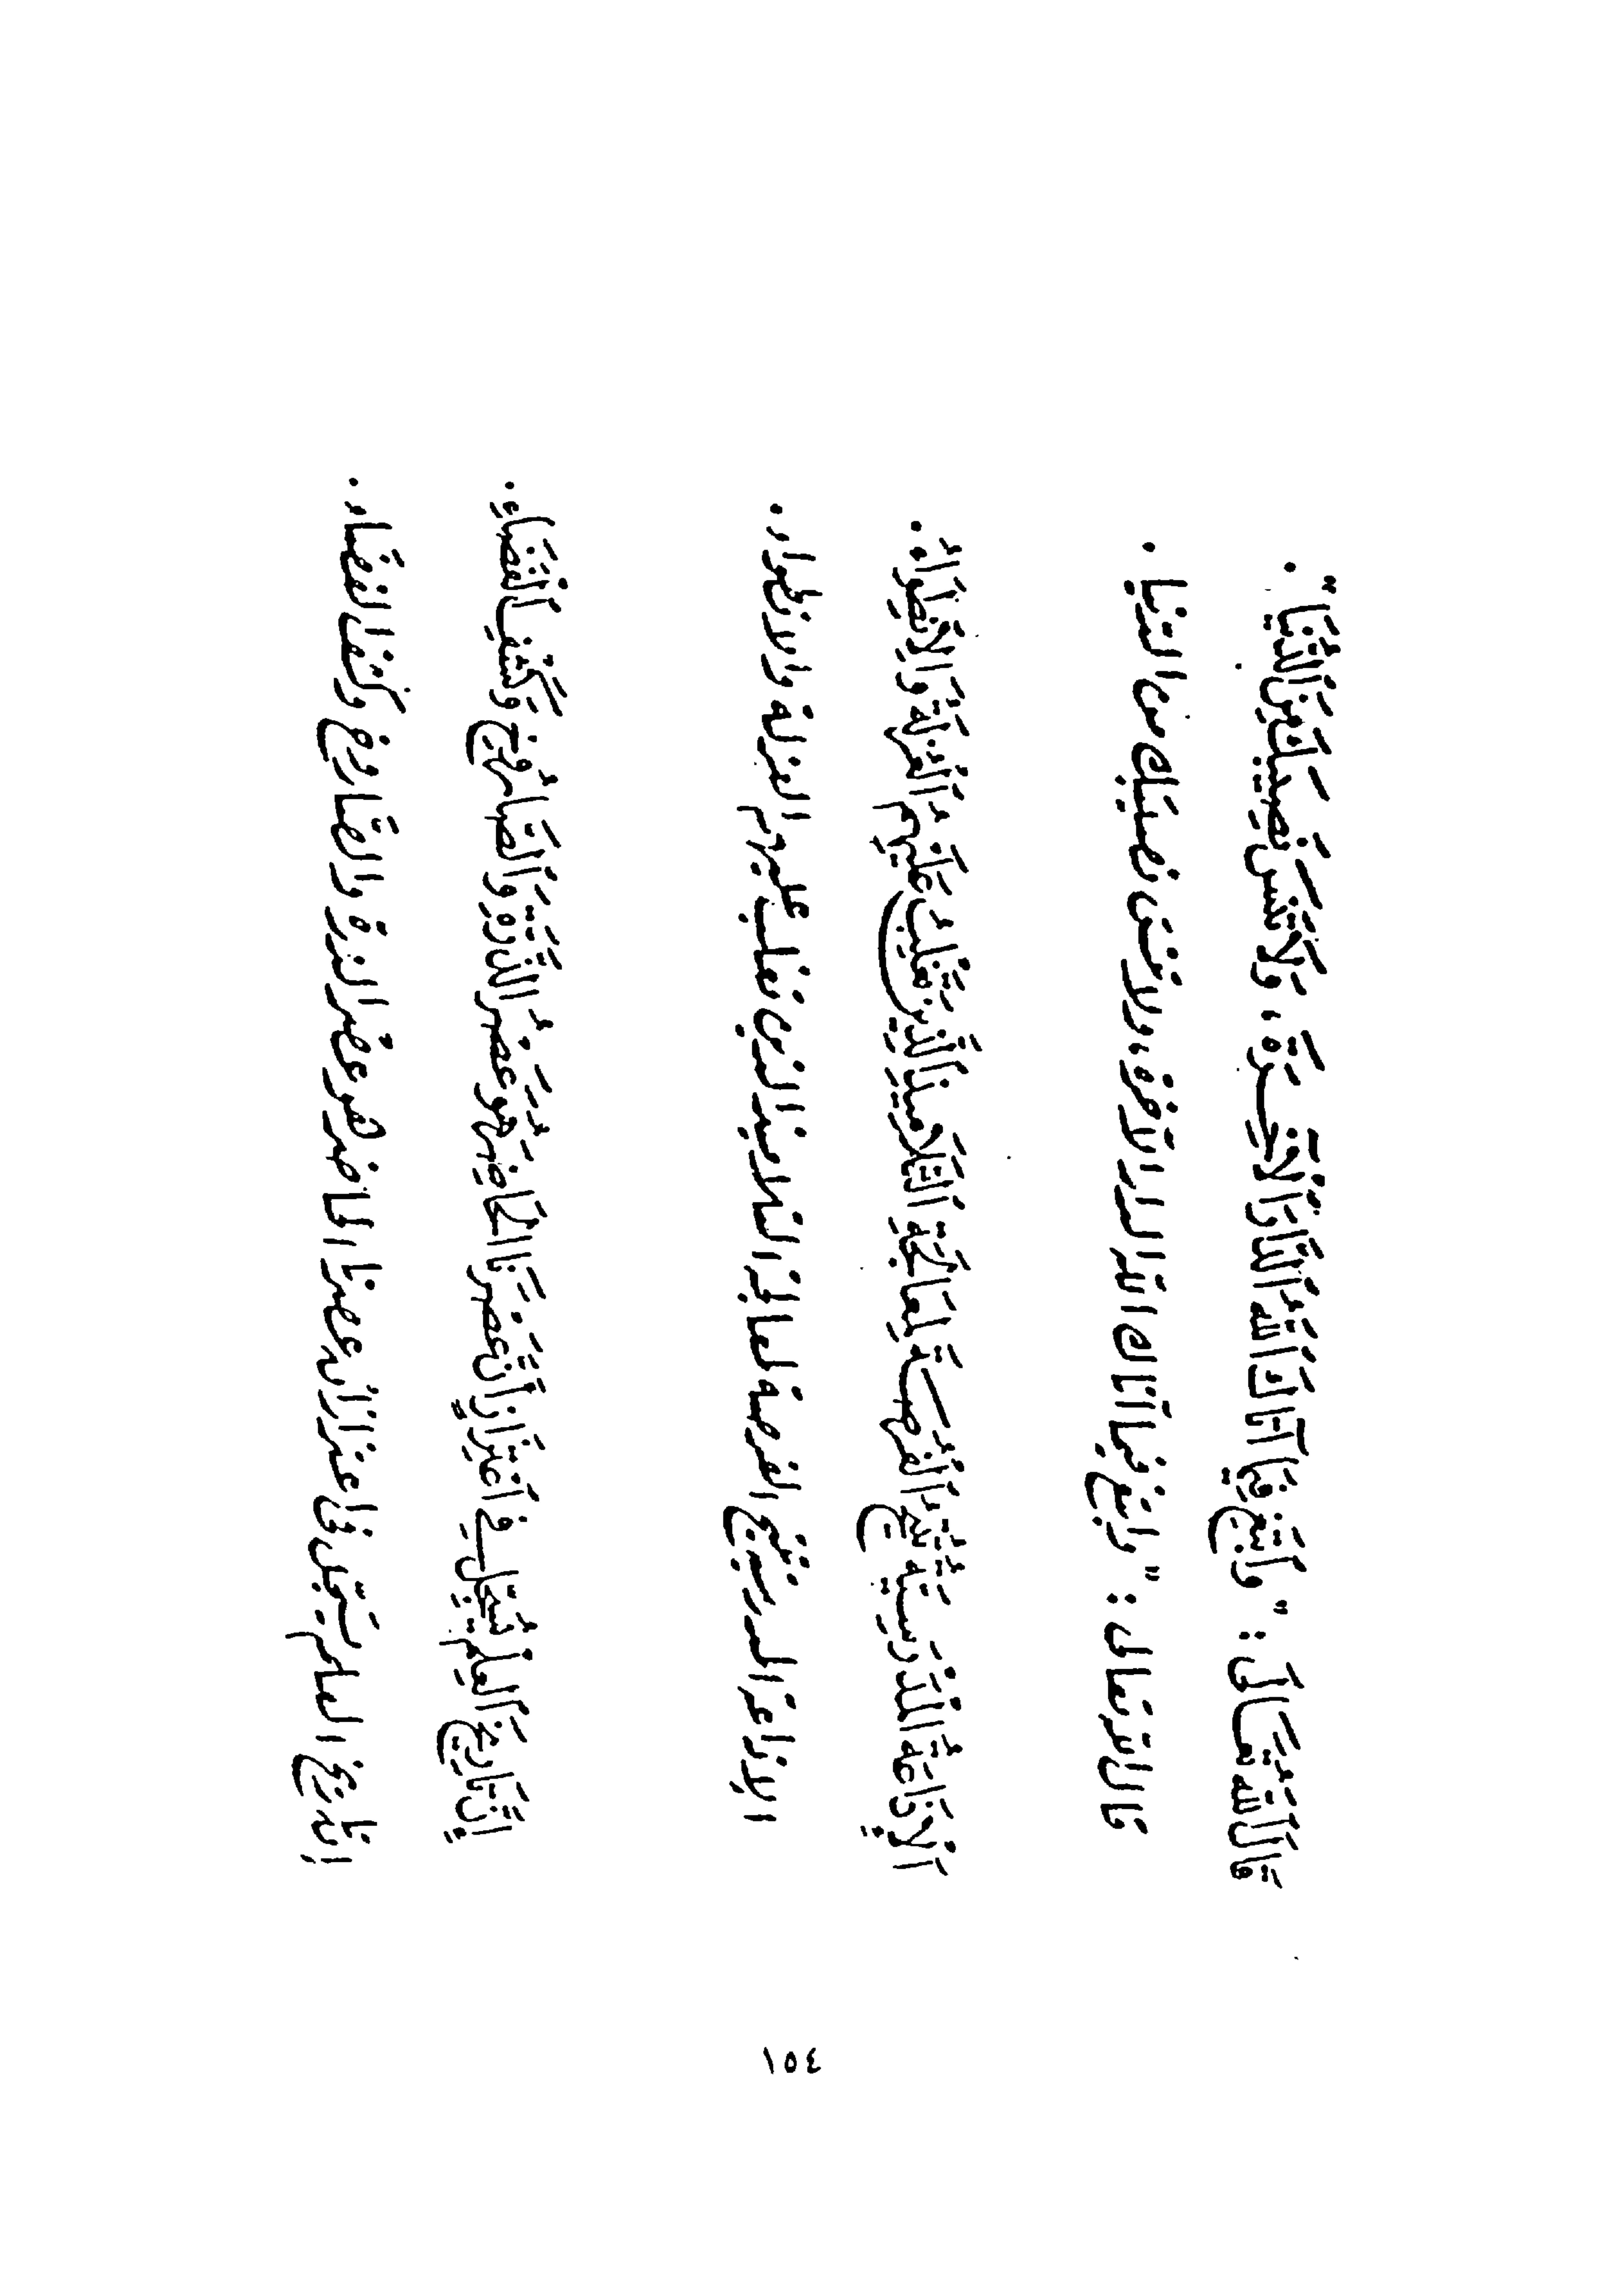 قَالَ اللهُ تَعَالَى : " وَابْتَغِ فِيمَا آتَاكَ اللهُ الدَّارَ الْآخِرَةَ ، وَلَا تَنْسَ نَصِيبَكَ مِنَ الدُّنْيَا " .
قال الله تعالى : " وابتغ فيما آتاك الله الدار الآخرة ، ولا تنس نصيبك من الدنيا .
الْإِذَاعَةُ الْمَدْرَسِيَّةُ تُتِيحُ الْفُرْصَةَ لِمُعَالَجَةِ التَّلَامِيذِ الَّذِينَ تَغْلِبُ عَلَيْهِمُ الْعُزْلَةُ وَالِانْطِوَاءُ .
الإذاعة المدرسية تتيح الفرصة لمعالجة التلاميذ الذين تغلب عليهم العزلة والانطواء .
إِنَّ تَارِيخَ الْعِلْمِ يُسَجِّلُ فِي اعْتِزَازٍ أَنَّ عَصْرَنَا الْحَاضِرَ هُوَ عَصْرُ الذَّرَّةِ وَالصَّارُوخِ وَكَشْفِ الْفَضَاءِ .
إن تاريخ العلم يسجل في اعتزاز أن عصرنا الحاضر هو عصر الذرة والصاروخ وكشف الفضاء .
١٥٤